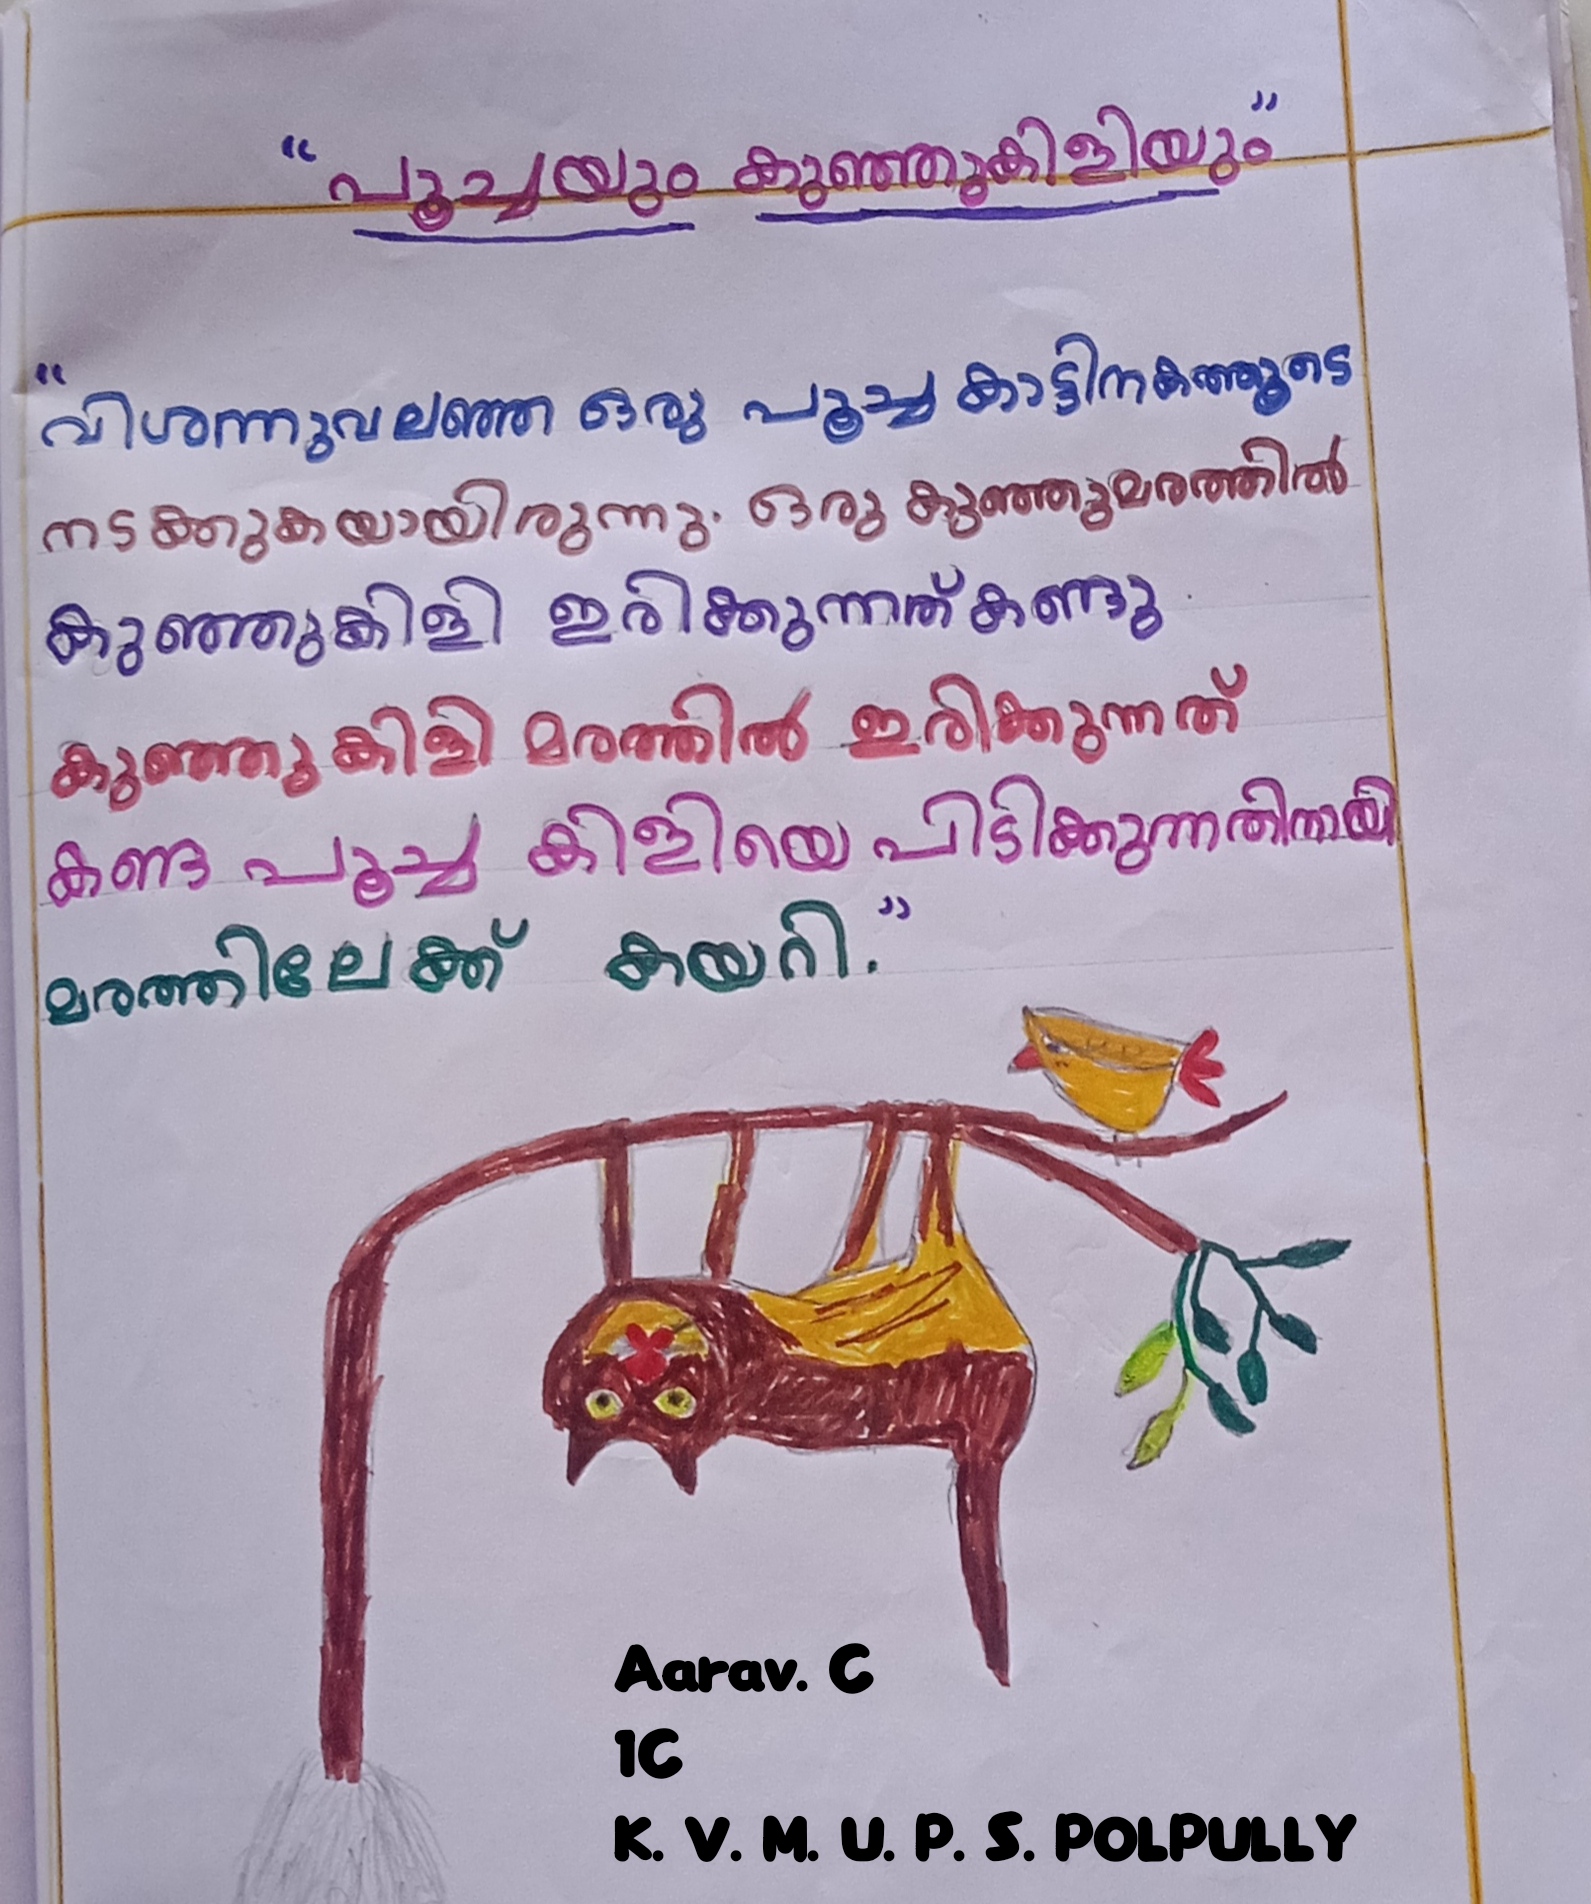 “പൂച്ചയും കുഞ്ഞുകിളിയും”
“വിശന്നുവലഞ്ഞ ഒരു പൂച്ച കാട്ടിനകത്തൂടെ
നടക്കുകയായിരുന്നു. ഒരു കുഞ്ഞുമരത്തിൽ
കുഞ്ഞുകിളി ഇരിക്കുന്നത് കണ്ടു
കുഞ്ഞുകിളി മരത്തിൽ ഇരിക്കുന്നത്
കണ്ട പൂച്ച കിളിയെ പിടിക്കുന്നതിനായി
മരത്തിലേക്ക് കയറി.”
Aarav. C
1C
K. V. M. U. P. S. POLPULLY